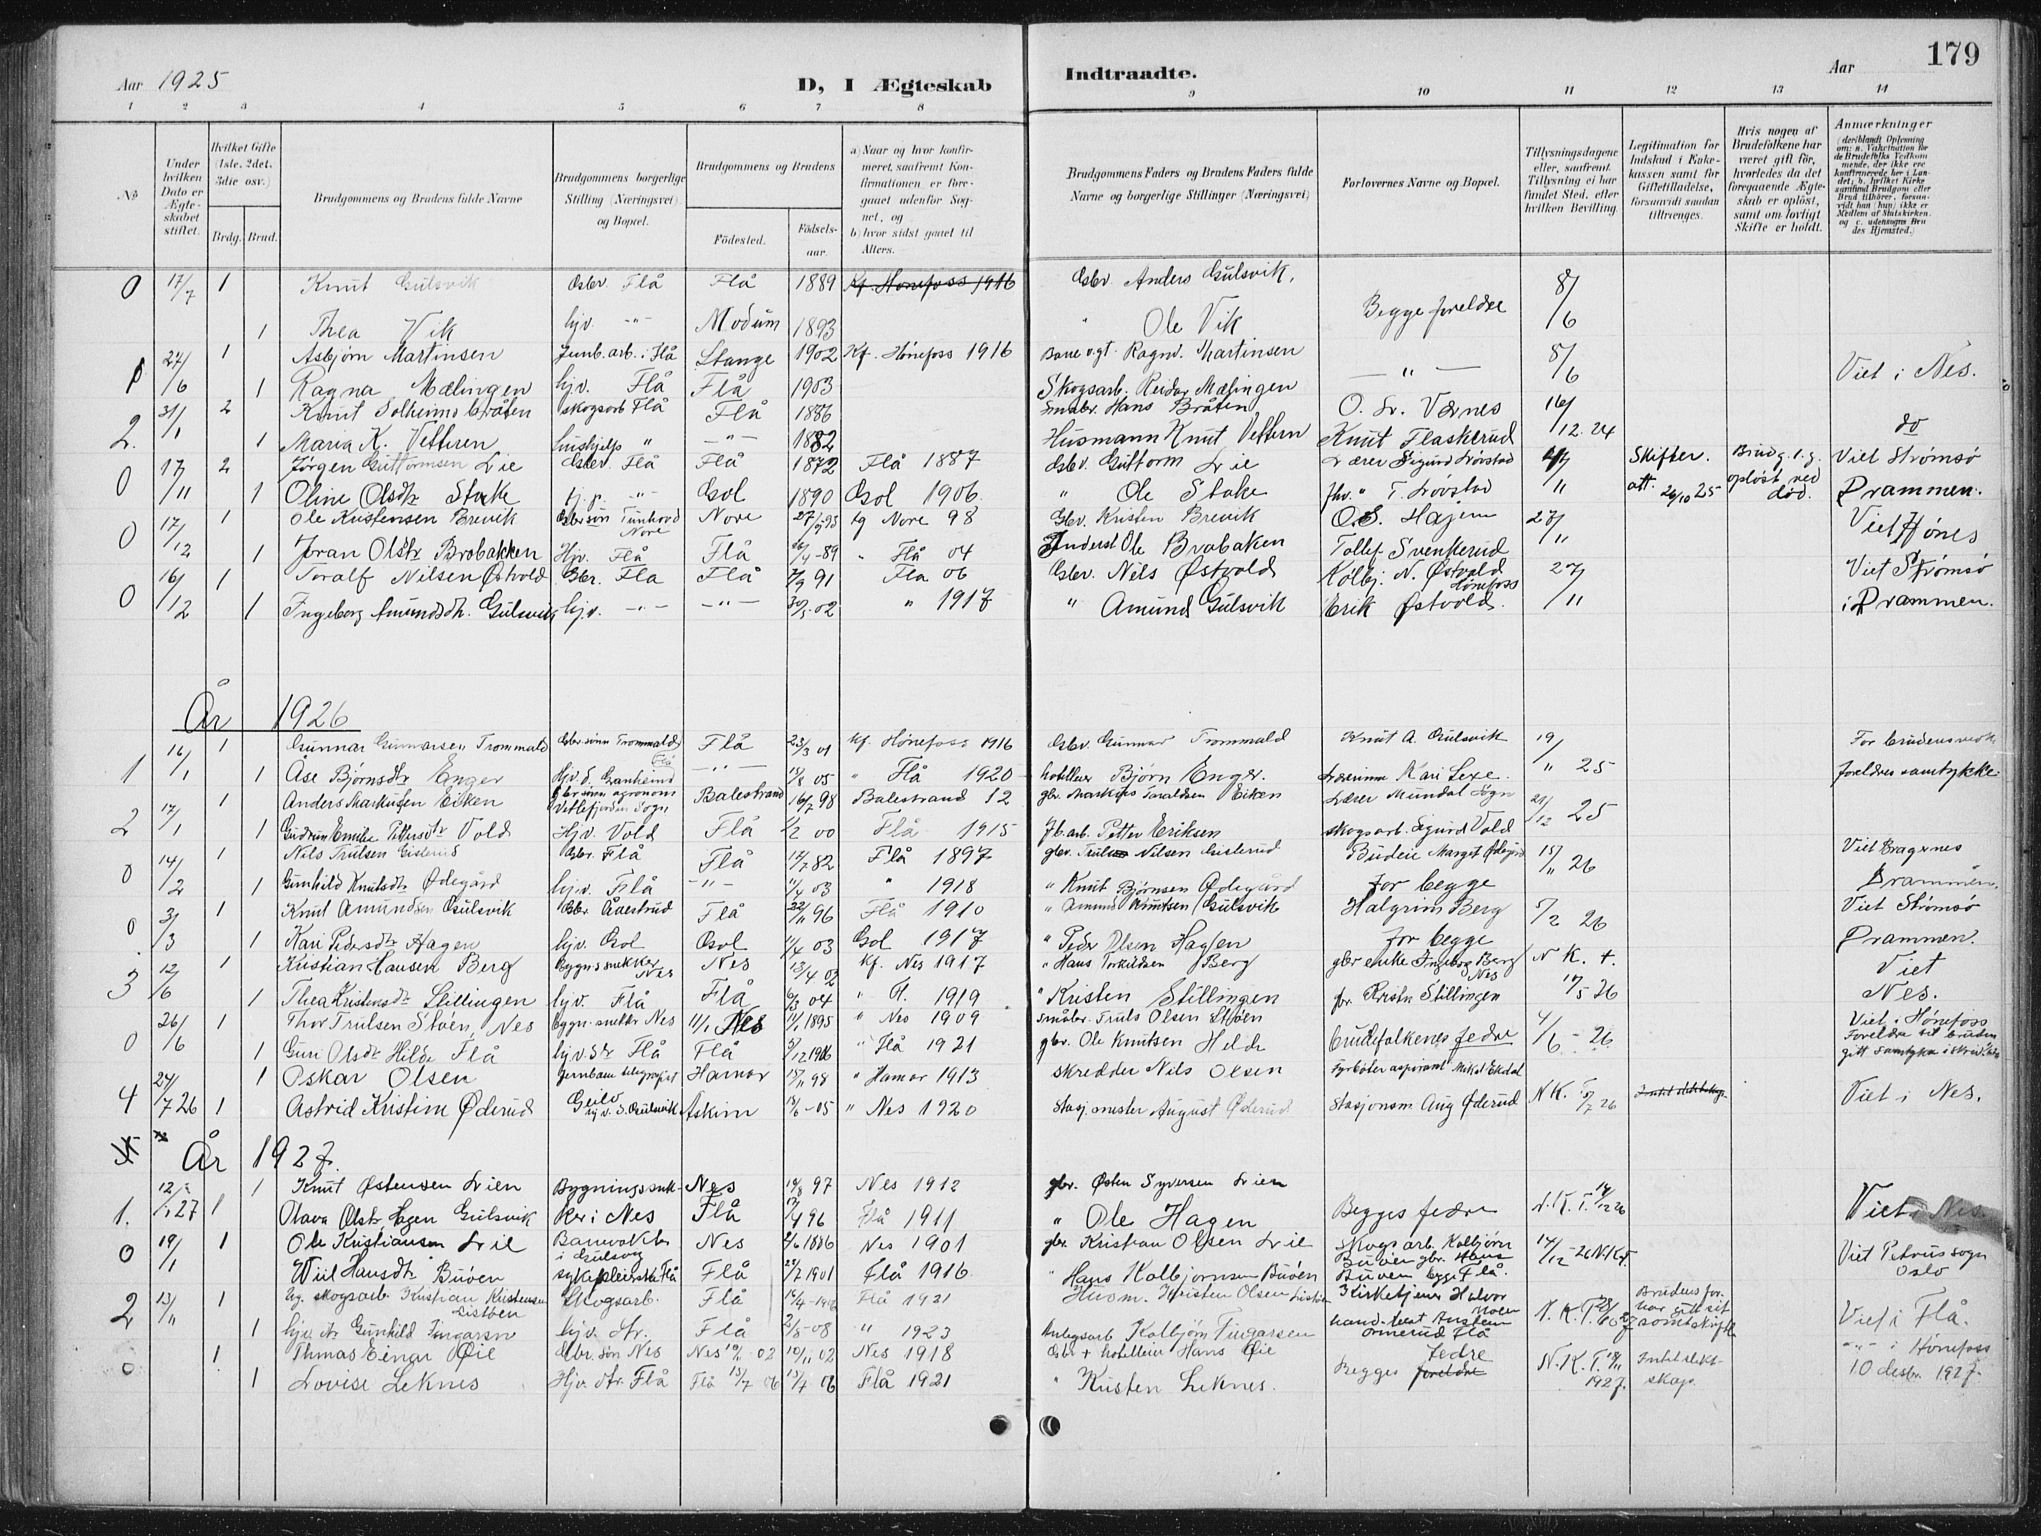 179
Aar 1925 D, I Ægteskab Indtraadte. Aar
1 2 3 4 5 6 7 8 9 10 11 12 13 14
No. Under hvilken Dato er Ægteskabet stiftet. Hvilket Gifte (1ste, 2det, 3die osv.) Brdg. Brud. Brudgommens og Brudens fulde Navne Brudgommens borgerlige Stilling (Næringsvei) og Bopæl. Brudgommens og Brudens Fødested. Fødselsaar. a) Naar og hvor konfirmeret, saafremt Konfirmationen er foregaaet udenfor Sognet, og b) hvor sidst gaaet til Alters.
Brudgommens Faders og Brudens Faders fulde Navne og borgerlige Stillinger (Næringsvei) Forlovernes Navne og Bopæl. Tillysningsdagene eller, saafremt Tillysning ei har fundet Sted, efter hvilken Bevilling. Legitimation for Indskud i Enkekassen samt for Giftetilladelse, forsaavidt saadan tiltrænges. Hvis nogen af Brudefolkene har været gift før, hvorledes da det foregaaende Ægteskab er opløst, samt om lovligt Skifte er holdt. Anmærkninger
0 17/7 1 Knut Gulsvik Gbr. Flå Flå 1889 Kf. Hønefoss 1916 Gbr. Anders Gulsvik, Begge foreldre 8/6
1 Thea Vik hjv. -"- Modum 1893 " Ole Vik
1 27/6 1 Asbjørn Martinsen Jernb.arb. i Flå Stange 1902 Kf. Hønefoss 1916 Banevgt. Ragnv. Martinsen - " - 8/6 Viet i Nes.
1 Ragna Mælingen hjv. Flå Flå 1903 Skogsarb. Reidar Mælingen
2. 31/1 2 Knut Solheim Bråten skogsarb Flå Flå 1886 Småbr. Hans Bråten O. Sr.Værnes 16/12.24 do
1 Maria K. Vetteren hushjelp " -"- 1882 Husmann Knut Vettern Knut Flaskerud
0 17/11 2 Jørgen Guttormsen Lie Gbr. Flå Flå 1872 Flå 1887 Gbr. Guttorm Lie Lærer Sigurd Lövstad Skifter. att. 26/10 25 Brudg. e.g. opløst ved död. Viet Strømsø
1 Oline Olsdtr Stake hj.p. -"- Gol 1890 Gol 1906. " Ole Stake fhv. " T. Lövstad Drammen.
0 17/12 1 Ole Kristensen Brevik Gbr.søn Tunhovd Nore Nore Kf Nore 98 Gbr. Kristen Brevik O.S. Hagem 27/11 Viet Hønes
1 Joran Olsdtr Brobakken Hjv. Flå Flå " Flå 04 Inderst Ole Brobaken Tollef Svenkerud
0 16/12 1 Toralf Nilsen Østvold Gbr. Fla Flå 91 Fla 06 Gbr. Nils Østvold Kolbj. N. Østvold Hönefoss 27/11 Viet Strømsø
1 Ingeborg Amundsdtr. Gulsvik hjv. -"- -"- 02 " 1917 " Amund Gulsvik Erik Østvold. i Drammen.
År 1926
1 16/1 1 Gunnar Gunnarsen Trommald Gbr.sønn Trommald Flå Flå 23/3 01 Kf. Hønefoss 1916 Gbr. Gunnar Trommald Knut A. Gulsvik 19/11 25 For brudens vedk.
1 Åse Björnsdtr Enger Hjv. S. Granheim -"- 05 " Flå 1920 hotelleier Bjørn Enger. Lærerinne Kari Lexe. foreldres samtykke
2 17/1 1 Anders Markusen Eiken Gbrsønn agronom Vetlefjorden Sogn Balestrand 16/7 98 Balestrand 12 gbr. Markus Taraldsen Eiken Lærer Mundal Sogn 21/12 25
1 Gudrun Emilie Pettersdtr Vold Hjv. Vold Flå 00 Flå 1915 Jb.arb. Petter Eriksen skogsarb. Sigurd Vold
0 14/2 1 Nils Trulsen Gisterud Gbr. Flå Flå 82 Flå 1897 gbr. Truls Nilsen Gisterud Budeie Margit Ødegård for begge 15/11 26 Viet Bragernes
1 Gunhild Knutsdtr Ødegård hjv. Flå -"- 03 " 1918 " Knut Bjørnsen Ødegård Drammen.
0 3/3 1 Knut Amundsen Gulsvik Gbr. Åvestrud Flå 22/11 96 Flå 1910 " Amund Knutsen Gulsvik Halgrim Berg for begge 5/2 26 Viet Strømsø
1 Kari Pedersdtr Hagen hjv. Gol Gol 03 Gol 1917 " Peder Olsen Hagen Drammen.
3 12/6 1 Kristian Hansen Berg Bygn.snekker Nes Nes 13/4 02 Kf. Nes 1917 " Hans Torkildsen Berg gbr enke Ingeborg Berg Nes N K. t. Viet
1 Thea Kristensdtr Stillingen hjv. Flå Flå 04 " Fl. 1919 " Kristen Stillingen gbr. Kristen Stillingen 17/5 26 Nes.
0 26/6 1 Thor Trulsen Støen, Nes bygn. snekker Nes 11/1 Nes 11/1 1895 " Nes 1909 Småbr. Truls Olsen Støen brudefolkenes fedre 4/6 - 26 Viet i Hönefoss
1 Guri Olsdtr Helde Flå hjv. dtr Flå Flå 5/12 1906 " Flå 1921 gbr. Ole Knutsen Helde Foreldre til bruden gitt samtykke
4 24/7 26 1 Oskar Olsen Jernbane telegrafist Geilo Hamar 15/11 98 " Hamar 1913 skredder Nils Olsen Fyrbøter aspirant Mikal Ekdal
1 Astrid Kristine Øderud hjv. S. Gulsvik Askim 13/6 - 05 " Nes 1920 Stasjonmester August Øderud Stasjonsm. Aug Øderud N.K.T. 5/7 26 Viet i Nes.
År 1927.
1. 12/1 27 1 Knut Østensen Lien Bygningssnek- Nes 19/8 97 Nes 1912 gbr. Østen Syversen Lien
1 Olava Olsdtr Hagen Gulsvik ker i Nes Flå 96 Flå 1911 " Ole Hagen Begges fedre N.K.T. 14/12 26 Viet i Nes
0 19/1 1 Ole Kristiansen Lie Banevokter i Gulsvig Nes 1886 Nes 1901 gbr. Kristian Olsen Lie Skogsarb. Kolbjörn Buöen gbr. Hans Buöen begge Flå. 14/12 - 26 N.K.T. Viet Petrus sogn Oslo
Hansdtr Buöen sykepleierske Flå Flå 1901 Flå 1916 " Hans Kolbjørnsen Buöen
2 13/11 1 Ug. skogsarb. Kristian Kristensen Listöen Skogsarb. Flå 16/4 - 1906 Flå 1921 Husm. Kristen Olsen Listöen Kirketjener Halvor Moen N.K.T. Brudens for- Viet i Flå.
1 hjv. dtr Gunhild Fingarsn hjv. dtr. Flå 21/8 - 08 " 1923 Anlegsarb Kolbjørn Fingarsen Ormerud Flå
0 1 Thmas Einar Øie Gbr.søn Nes Nes 10/11 02 10/11 02 Nes 1918 Gbr + hotelleier Hans Øie Begges foreldre fedre N.K.T. 18/11 1927. Intet slekt-skap. -"- i Hønefoss
1 Lovise Leknes Hjv. dtr. Flå Flå 13/7 06 13/7 06 Flå 1921 " Kristen Leknes. 10 desbr. 1927.